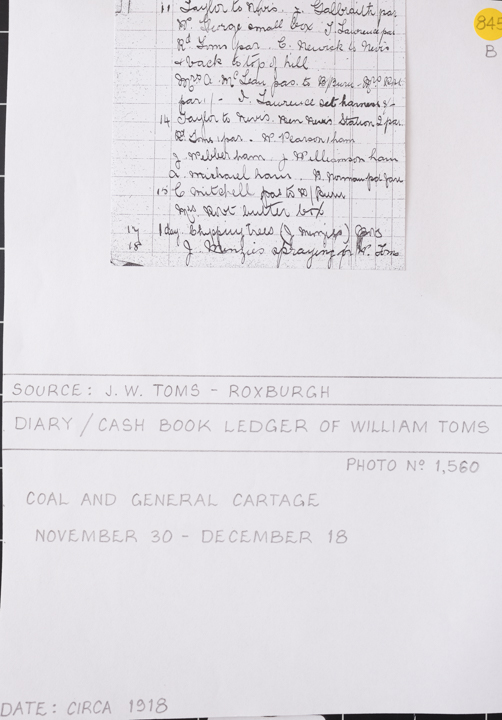 11 Taylor to Nevis. J. Galbraith par
845
B
Mr George small box J. Lawrence par
Rd Toms par. C. Newick to Nevis
& back to top of hill
Mrs A. McLean pas. to R/Burn - Mrs
par 1/- J. Laurence set harness
14 Taylor to Nevis. Ben Nevis Station 2 par
Rd Toms 1 par. W Pearson 1 ham
J. Webber ham. J Williamson ham
A. Michael ham. R. Norman
15 C Mitchell pas to R/Burn
Mrs butter box
17 1 day Chipping trees (J Menzies)
18 J Menzies spraying for W. Toms
SOURCE: J. W. TOMS - ROXBURGH
DIARY / CASH BOOK LEDGER OF WILLIAM TOMS
PHOTO Nº 1,560
COAL AND GENERAL CARTAGE
NOVEMBER 30 - DECEMBER 18
DATE: CIRCA 1918